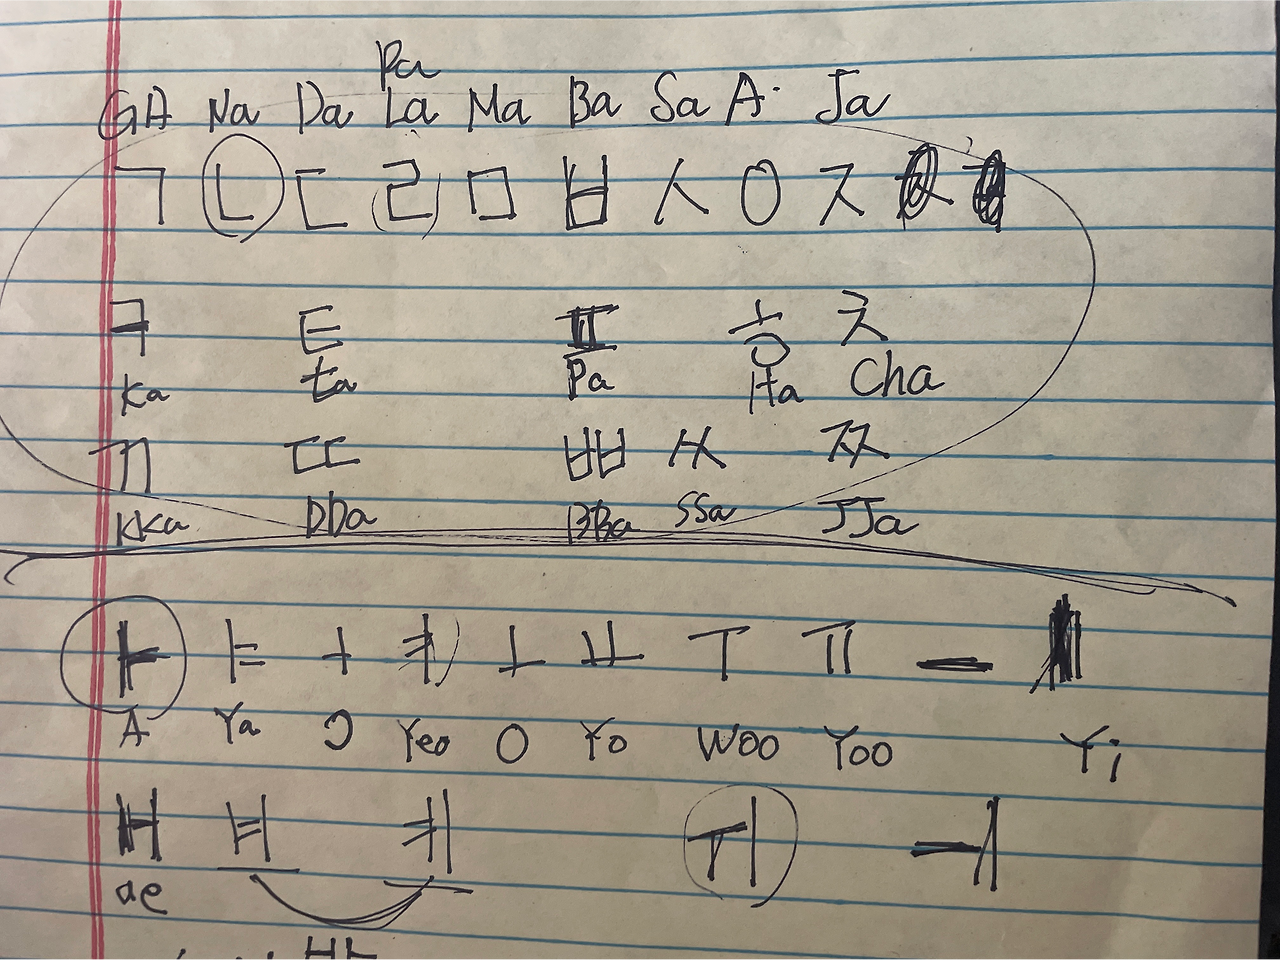 Pa
GA Na Da La Ma Ba Sa A Ja
ㄱ ㄴ ㄷ ㄹ ㅁ ㅂ ㅅ ㅇ ㅈ
ㅋ ㅌ ㅍ ㅎ ㅊ
Ka ta Pa Ha Cha
ㄲ ㄸ ㅃ ㅆ ㅉ
KKa DDa BBa SSa JJa
ㅏ ㅑ ㅓ ㅕ ㅗ ㅛ ㅜ ㅠ ㅡ ㅣ
A Ya Ɔ Yeo O Yo Woo Yoo Yi
ㅐ ㅒ ㅖ ㅟ ㅢ
ae